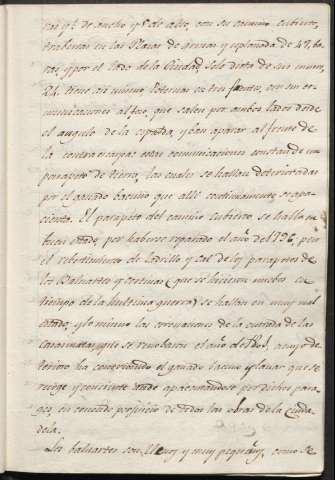 ras ps. de ancho y 8 de alto, con su camino cubierto,
tres en las Plazas de armas y esplanada de 47 ba
ras, y por el lado de la Ciudad, solo dista de sus muros,
24. tiene asi mismo en tres frentes, con sus co
municaciones al foso, que salen por ambos lados desde
el angulo de la y ban aparar al frente de
la contraescarpa: estas comunicaciones constan de un
parapeto de tierra, las cuales se hallan deterioradas
por el ganado bacuno que alli continuamente se apa
cienta. El parapeto del camino cubierto se halla en
buen estado, por haberse reparado el año de 1796, pero
el rebestimiento de ladrillo y cal de los parapetos de
los Baluartes y cortinas (que se hicieron nuebos en
tiempo de la hultima guerra) se hallan en muy mal
estado, y lo mismo las de la entrada de las
Casamatas, que se renobaron el año de 1801, a cuyo de
terioro ha el ganado bacuno y lanar que se
recoge y combierte donde apacentandose por dichos para
ges, en conocido perjuicio de todas las obras de la Ciuda
dela.
Los baluartes son llenos y muy pequeños, como se